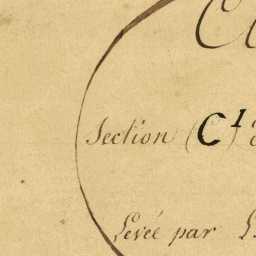 Section (C¹
Levée par